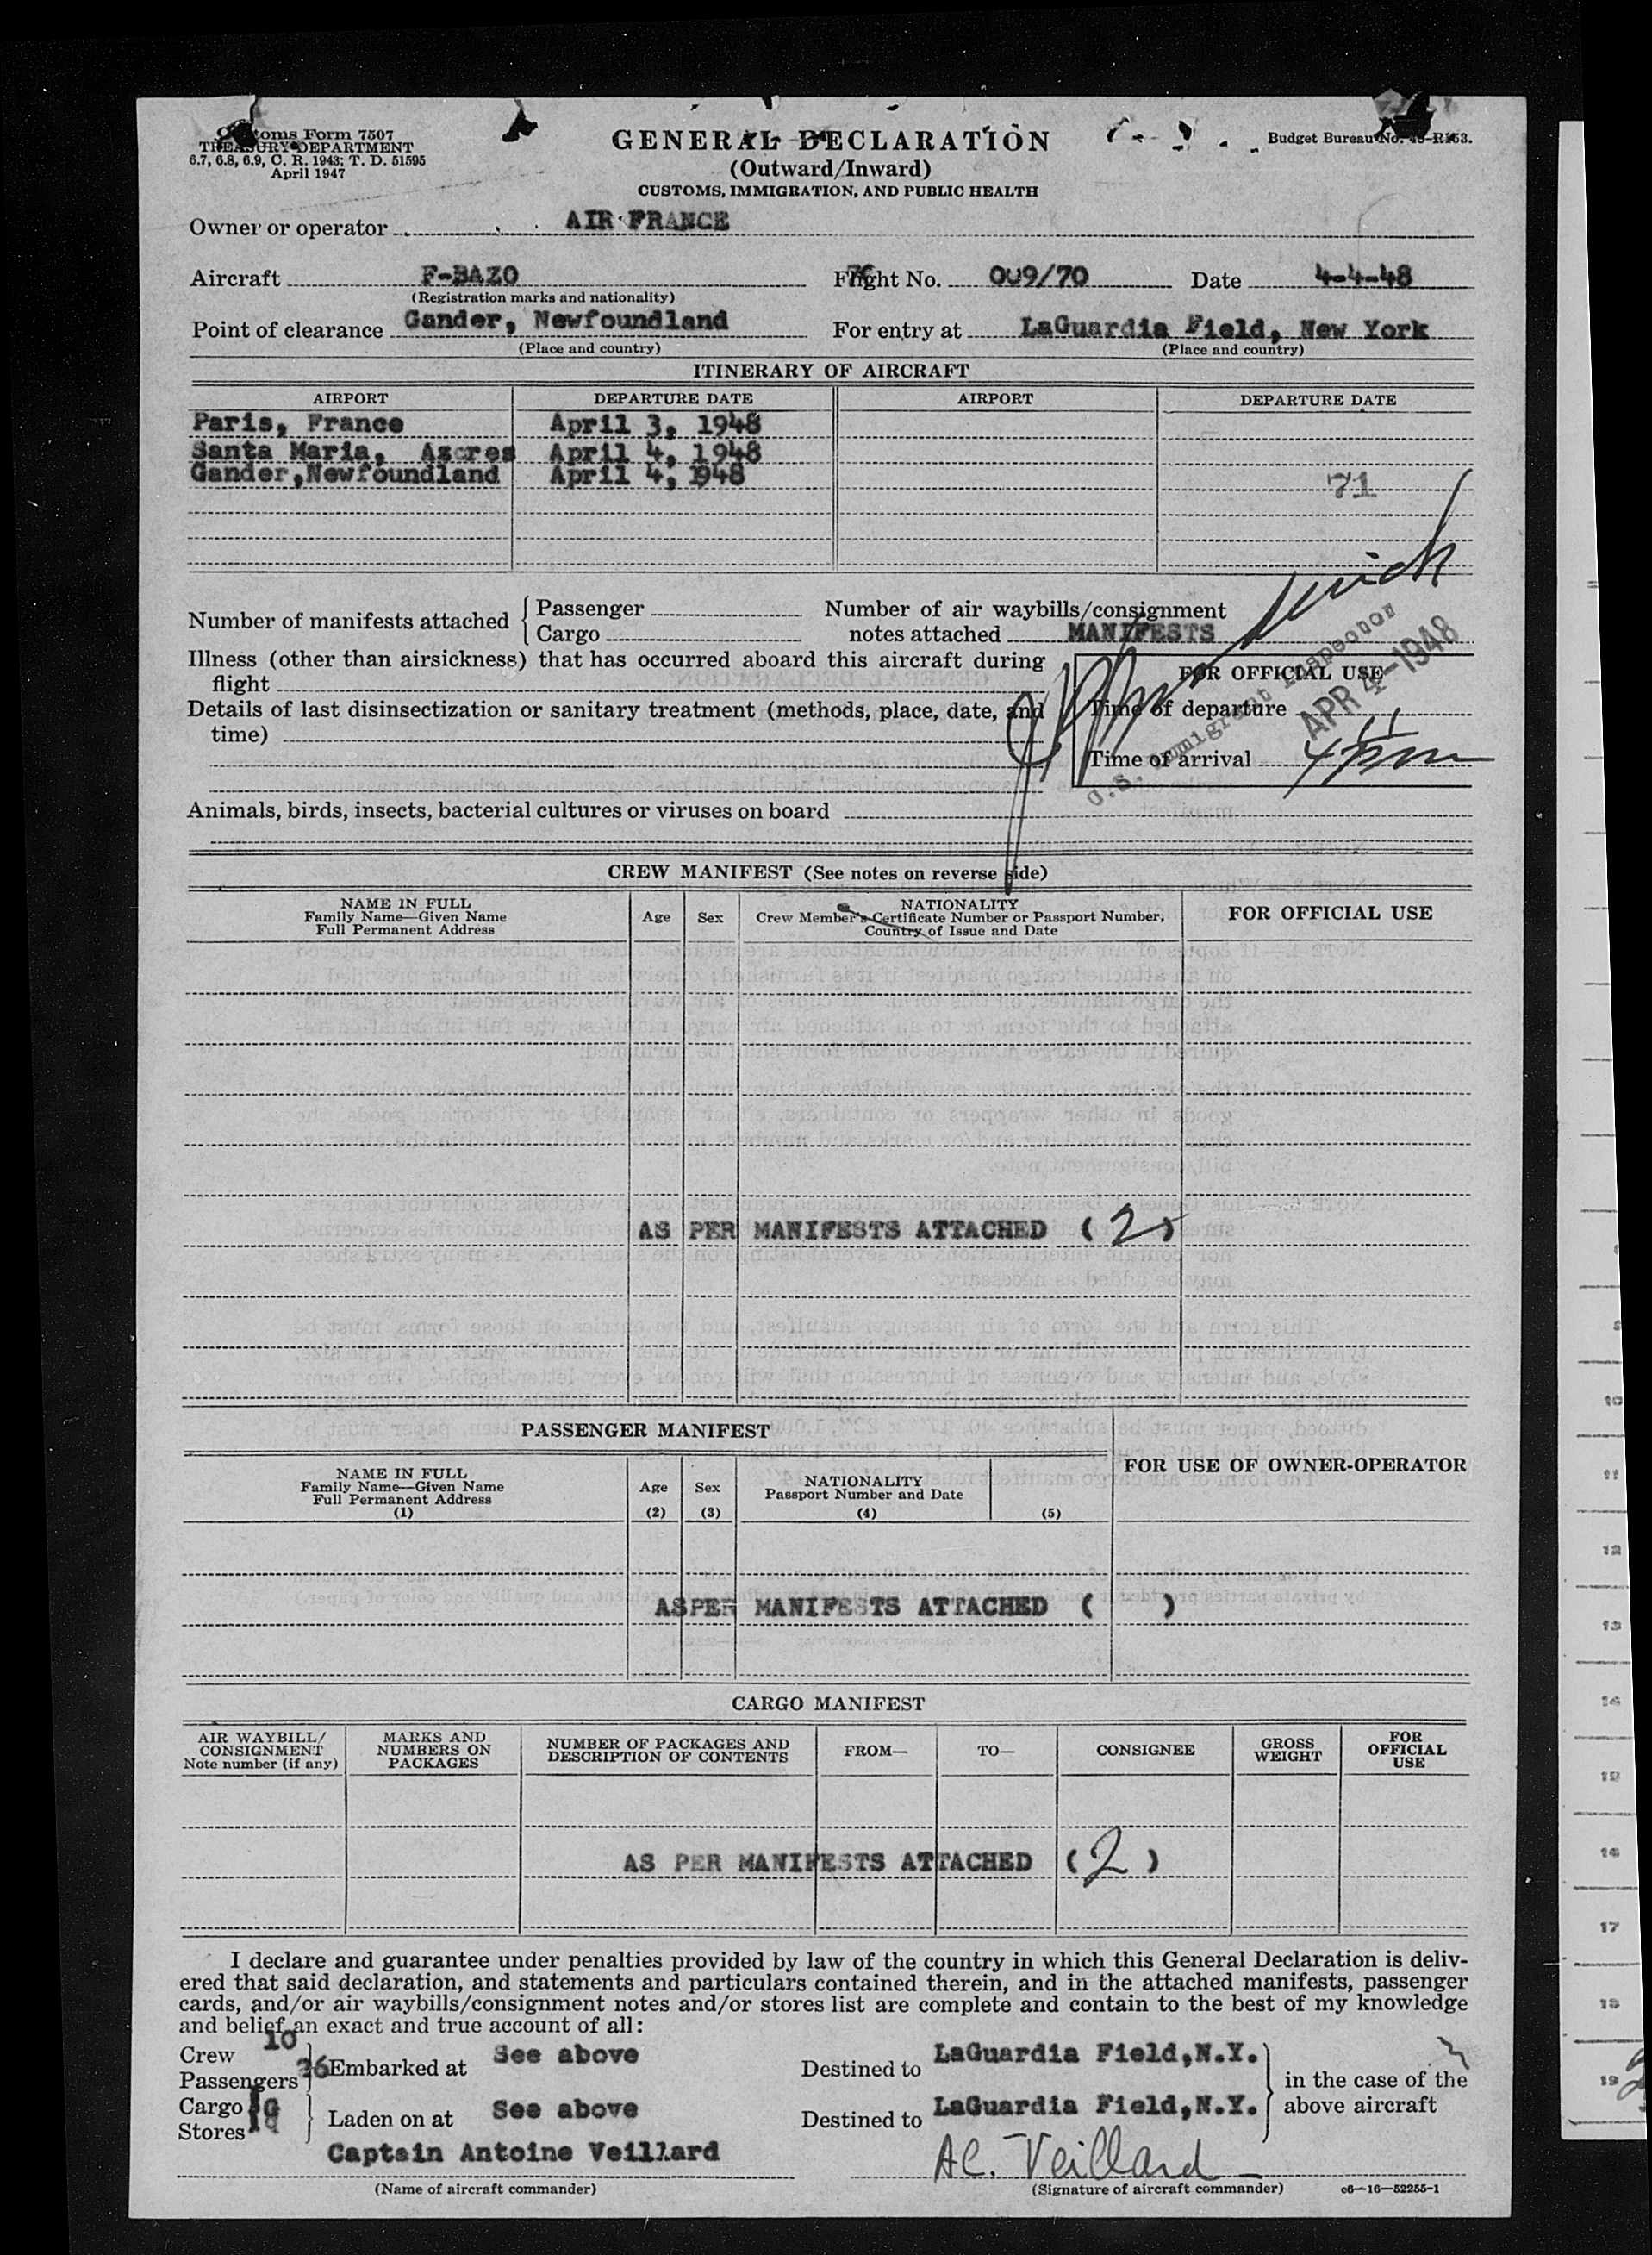 Customs Form 7507
TREASURY DEPARTMENT
6.7, 6.8, 6.9, C. R. 1943; T. D. 51595
April 1947
GENERAL DECLARATION
(Outward/Inward)
CUSTOMS, IMMIGRATION, AND PUBLIC HEALTH
Budget Bureau No.
Owner or operator AIR FRANCE
Aircraft F-BAZO Flight No. 009/70 Date 4-4-48
(Registration marks and nationality)
Point of clearance Gander, Newfoundland For entry at LaGuardia Field, New York
(Place and country) (Place and country)
ITINERARY OF AIRCRAFT
AIRPORT DEPARTURE DATE AIRPORT DEPARTURE DATE
Paris, France April 3, 1948
Santa Maria, Azores April 4, 1948
Gander,Newfoundland April 4, 1948
71
Number of manifests attached { Passenger
Cargo
Number of air waybills/consignment
notes attached MANIFESTS
Illness (other than airsickness) that has occurred aboard this aircraft during
flight
Details of last disinsectization or sanitary treatment (methods, place, date, and
time)
FOR OFFICIAL USE
Time of departure
Time of arrival 4 pm
U.S. Immigrant Inspector
APR 4-1948
Animals, birds, insects, bacterial cultures or viruses on board
CREW MANIFEST (See notes on reverse side)
NAME IN FULL
Family Name—Given Name
Full Permanent Address
Age Sex
NATIONALITY
Crew Member's Certificate Number or Passport Number,
Country of Issue and Date
FOR OFFICIAL USE
AS PER MANIFESTS ATTACHED (2)
PASSENGER MANIFEST
NAME IN FULL
Family Name—Given Name
Full Permanent Address
(1)
Age
(2)
Sex
(3)
NATIONALITY
Passport Number and Date
(4)
(5)
FOR USE OF OWNER-OPERATOR
ASPER MANIFESTS ATTACHED ( )
CARGO MANIFEST
AIR WAYBILL/
CONSIGNMENT
Note number (if any)
MARKS AND
NUMBERS ON
PACKAGES
NUMBER OF PACKAGES AND
DESCRIPTION OF CONTENTS
FROM—
TO—
CONSIGNEE
GROSS
WEIGHT
FOR
OFFICIAL
USE
AS PER MANIFESTS ATTACHED (2)
I declare and guarantee under penalties provided by law of the country in which this General Declaration is deliv-
ered that said declaration, and statements and particulars contained therein, and in the attached manifests, passenger
cards, and/or air waybills/consignment notes and/or stores list are complete and contain to the best of my knowledge
and belief an exact and true account of all:
Crew 10
Passengers 36 } Embarked at See above Destined to LaGuardia Field,N.Y.
Cargo
Stores } Laden on at See above Destined to LaGuardia Field,N.Y.
in the case of the
above aircraft
Captain Antoine Veillard
AC. Veillard
(Name of aircraft commander) (Signature of aircraft commander) c6—16—52255-1
10
11
12
13
14
15
16
17
18
19